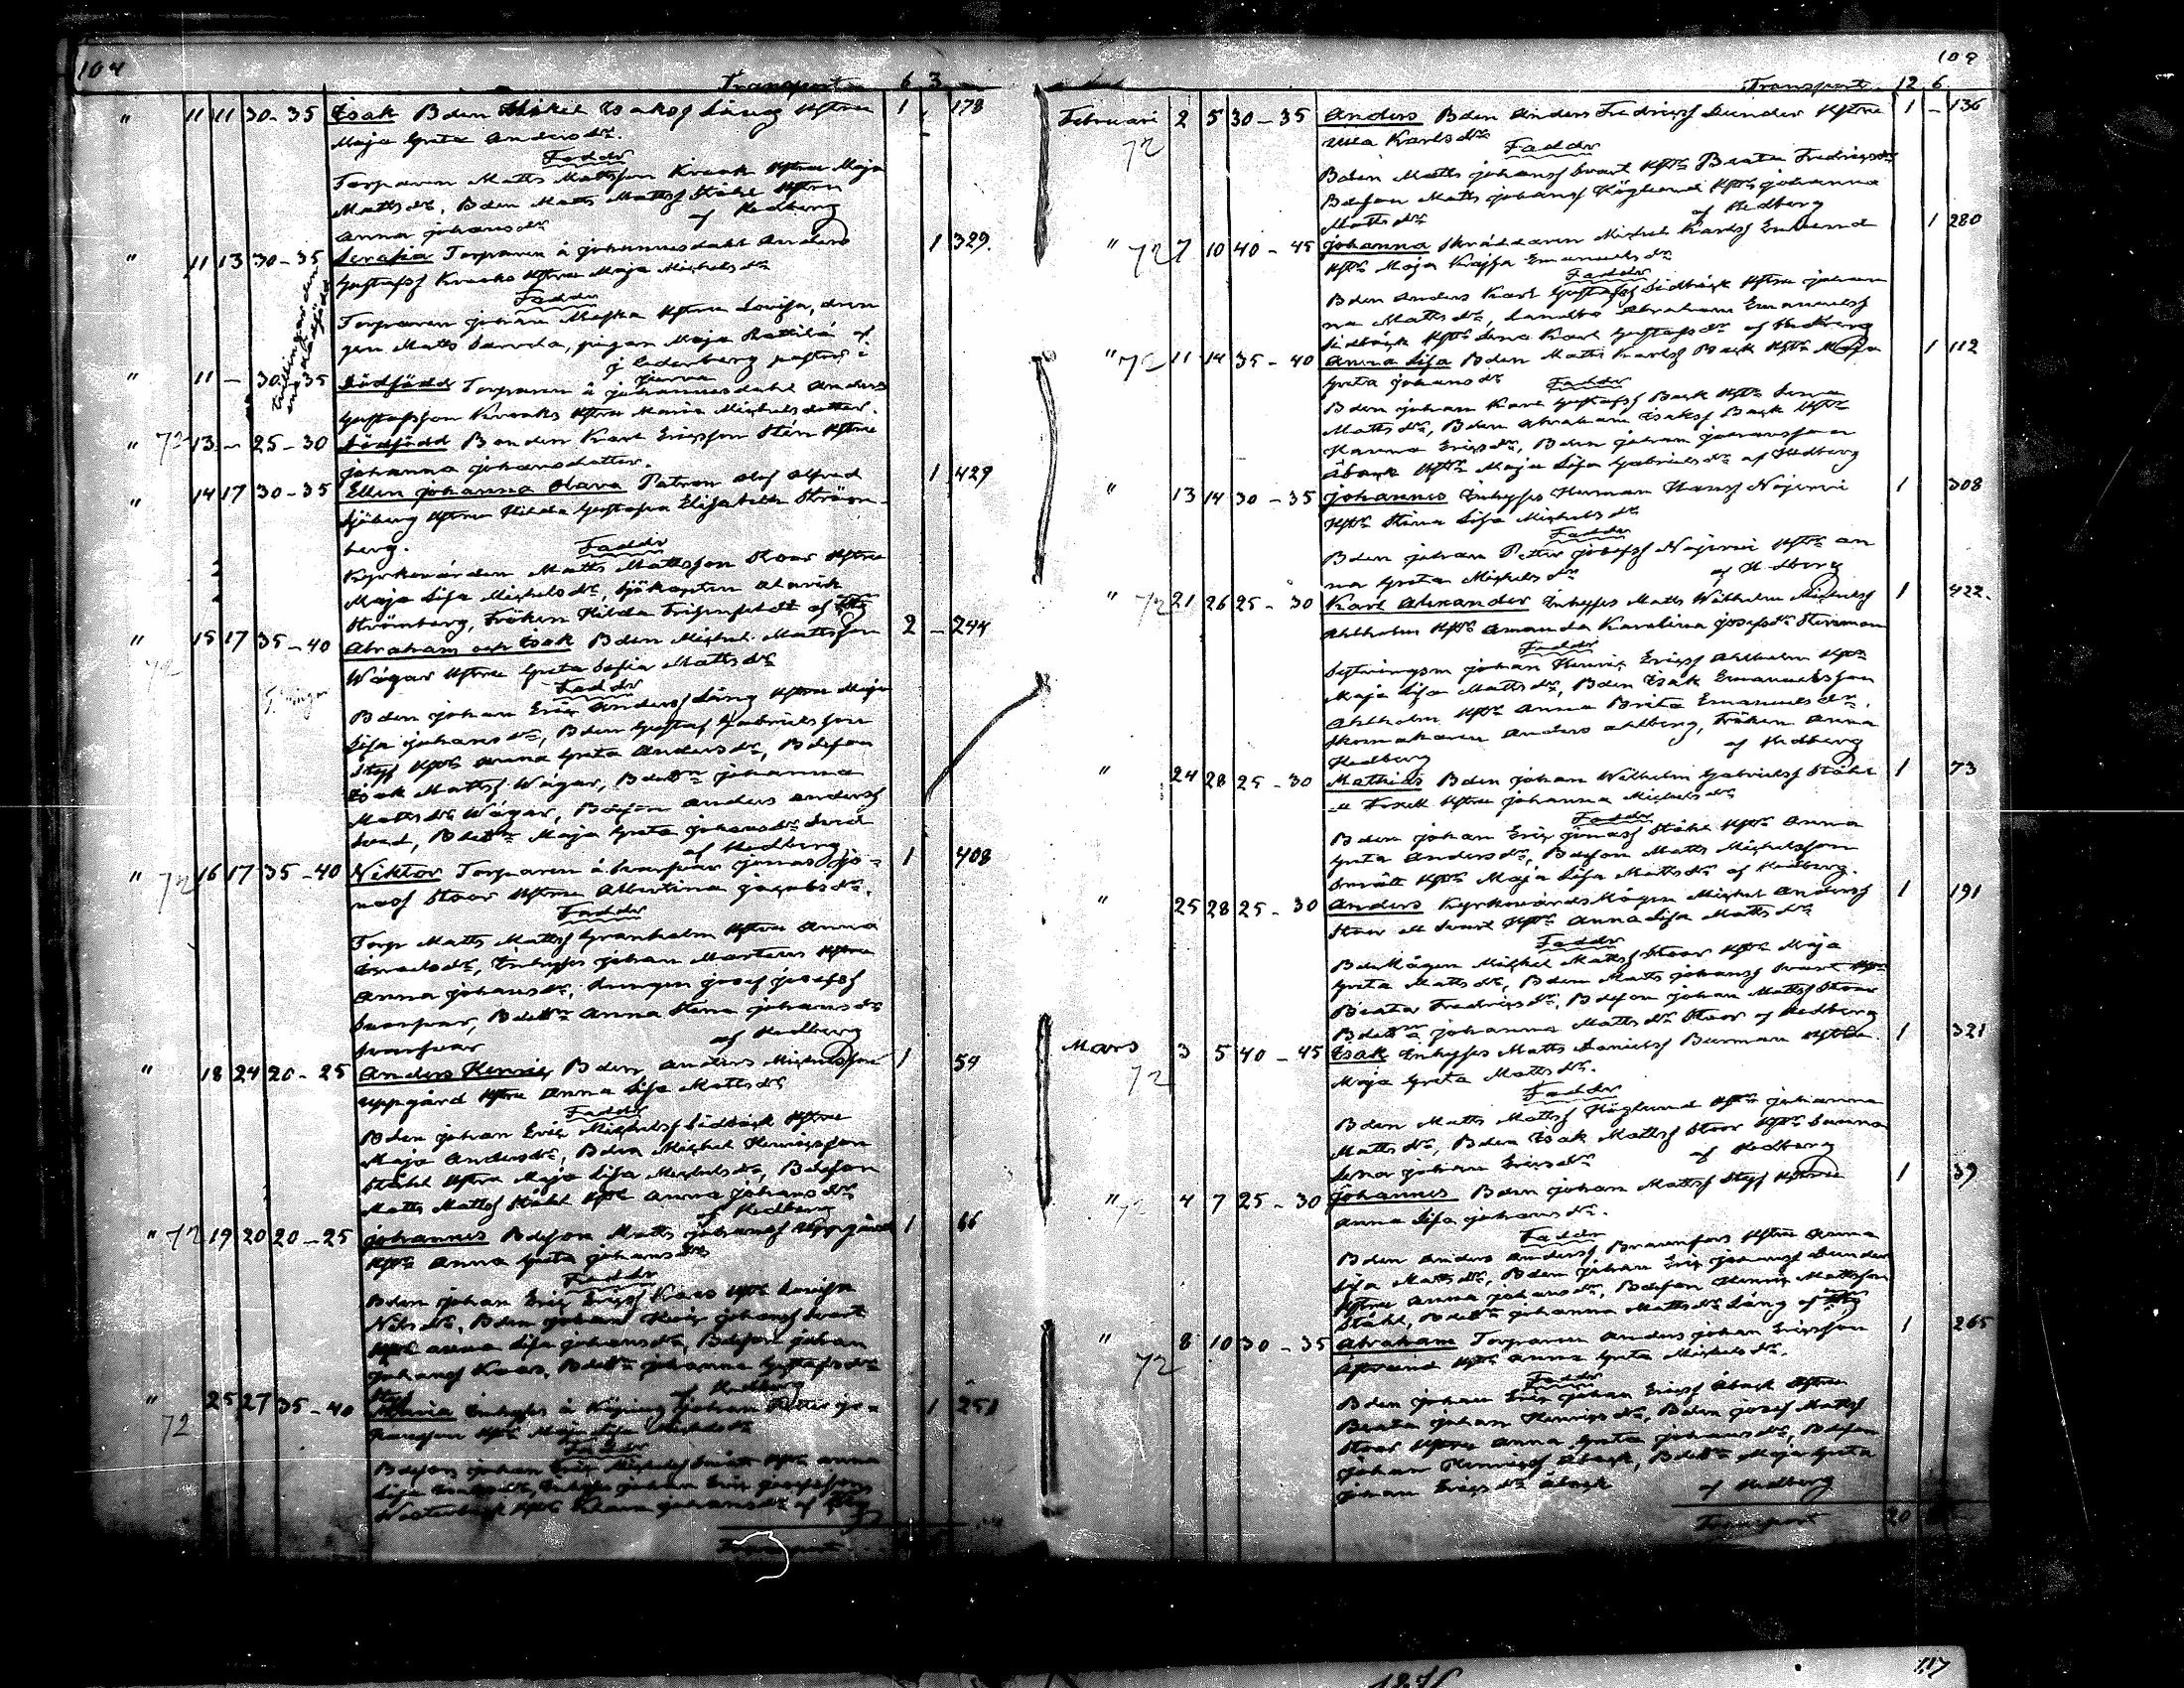 104
Transport 6 3
" 11 11 30-35 Isak Bden Mikel Isaksf Lång Hstru 1 178
Maja Greta Andersdr.
Faddr
Torparen Matts Mattsson Kraak Hstru Maja
Mattsdr, Bden Matts Mattsf Ståhl Hstru
Anna Johansdr af Hedberg
" 11 13 30-35 Serafia Torparen å Johannesdahl Anders 1 329.
Gustafsf Kraaks Hstru Maja Michelsdr
Faddr
Torparen Johan Hstru Lovisa, dren
gen Matts, pigan Maja af
J Cederberg pastor i
" 11 - 30-35 Dödfödd Torparen å Johannesdahl Anders
Gustafsson Kraaks Hstru Maria Michelsdotter.
" 72 13 - 25-30 Dödfödd Bonden Karl Ericsson Sten Hstru
Johanna Johansdotter.
" 14 17 30-35 Ellen Johanna Olava Patron Olof Alfred 1 429
Sjöberg Hstru Hilda Gustafva Elisabeth Ström-
berg.
Faddr
Kyrkovärden Matts Mattsson Stoor Hstru
Maja Lisa Michelsdr, Sjökapten Alarik
Strömberg, Fröken Hilda af Hbg
" 15 17 35-40 Abraham och Isak Bden Michel Mattsson 2 - 244
72
Wägar Hstru Greta Sofia Mattsdr
Faddr
Bden Johan Eric Andersf Lång Hstru Maja
Lisa Johansdr, Bden Gustaf Gabrielsson
Styf Hstr Anna Greta Andersdr, Bdeson
Isak Mattsf Wägar, Bdettr Johanna
Mattsdr Wägar, Bdeson Anders Andersf
Sved, Bdettr Maja Greta Johansdr Sved
af Hedberg
" 72 16 17 35-40 Viktor Torparen å Svarfvar Jonas Jo- 1 408
nasf Stoor Hstru Albertina Jacobsdr.
Faddr
Torp Matts Mattsf Granholm Hstru Anna
Israelsdr, Inhyses Johan Martens Hstru
Anna Johansdr, Drengen Josef Josefsf
Svarfvar, Bdettr Anna Stina Johansdr
Svarfvar af Hedberg
" 18 24 20-25 Anders Henric Bden Anders Michelsson 1 54
Uppgård Hstru Anna Lisa Mattsdr
Faddr
Bden Johan Eric Michelsf Sidbäck Hstru
Maja Andersdr, Bden Michel Henricsson
Ståhl Hstru Maja Lisa Michelsdr, Bdeson
Matts Mattsf Ståhl Hstr Anna Johansdr
af Hedberg
" 72 19 20 20-25 Johannes Bdeson Matts Johansf Uppgård 1 66
Hstr Anna Greta Johansdr
Faddr
Bden Johan Eric Ericsf Kaas Hstr Lovisa
Nilsdr, Bden Johan Henric Johansf Svart
Hstr Anna Lisa Johansdr, Bdeson Johan
Johansf Kaas, Bdettr Johanna Gustafsdr
Styf af Hedberg
" 72 25 27 35-40 Maria Inhyses å Köping Johan Petter Jo- 1 251
hansson Hstr Maja Lisa Michelsdr
Faddr
Bdeson Johan Eric Michelsf Hstr Anna
Lisa, Inhyses Johan Eric Josefsson
Westerback Hstr Johansdr af Hbg
Transport
109
Transport 12 6
Februari 2 5 30-35 Anders Bden Anders Fredricsf Sunder Hstru 1 - 136
72 Ulla Karlsdr
Faddr
Bden Matts Johansf Svart Hstr Beata Fredricsdr
Bdeson Matts Johansf Höglund Hstr Johanna
Mattsdr af Hedberg
" 72 7 10 40-45 Johanna Skräddaren Michel Karlsf Enlund 1 280
Hstr Maja Kajsa Emanuelsdr
Faddr
Bden Anders Karl Gustafsf Sidbäck Hstru Johan
na Mattsdr, Landbo Abraham Emanuelsf
Sidbäck Hstr Lena Karl Gustafsdr af Hedberg
" 72 11 14 35-40 Anna Lisa Bden Matts Karlsf Back Hstr Maja 1 112
Greta Johansdr
Faddr
Bden Johan Karl Gustafsf Back Hstr Lena
Mattsdr, Bden Abraham Isaksf Back Hstr
Hanna Ericsdr, Bden Johan Johansson
Åback Hstr Maja Lisa Gabrielsdr af Hedberg
" 13 14 30-35 Johannes Inhyses Herman Hansf Nojervi 1 308
Hstr Stina Lisa Michelsdr
Faddr
Bden Johan Peter Josefsf Nojervi Hstr An
na Greta Michelsdr af Hedberg
" 72 21 26 25-30 Karl Alexander Inhyses Matts Wilhelm Michelsf 1 422.
Ahlholm Hstr Amanda Karolina Josefsdr
Faddr
Johan Henric Ericsf Ahlholm Hstr
Maja Lisa Mattsdr, Bden Isak Emanuelsson
Ahlholm Hstr Anna Brita Emanuelsdr.
Skomakaren Anders Ahlberg, Fröken Anna
Hedberg af Hedberg
" 24 28 25-30 Mathias Bden Johan Wilhelm Gabrielsf Ståhl 1 73
Hstru Johanna Michelsdr
Faddr
Bden Johan Eric Jonasf Ståhl Hstr Anna
Greta Andersdr, Bdeson Matts Michelsson
Hstr Maja Lisa Mattsdr af Hedberg.
" 25 28 25-30 Anders Kyrkovärds Mågen Michel Andersf 1 191
Stoor Hstr Anna Lisa Mattsdr
Faddr
Bde Mågen Michel Mattsf Stoor Hstr Maja
Greta Mattsdr, Bden Matts Johansf Svart Hstr
Beata Fredricsdr, Bdeson Johan Mattsf Stoor
Bdettr Johanna Mattsdr Stoor af Hedberg
Mars 3 5 40-45 Isak Inhyses Matts Danielsf Burman Hstru 1 321
72 Maja Greta Mattsdr.
Faddr
Bden Matts Mattsf Höglund Hstr Johanna
Mattsdr, Bden Isak Mattsf Stoor Hstr Sanna
Lena Johan Ericsdr af Hedberg
" 72 4 7 25-30 Johannes Bden Johan Mattsf Styf Hstru 1 39
Anna Lisa Johansdr.
Faddr
Bden Anders Andersf Bravenfors Hstru Anna
Lisa Mattsdr, Bden Johan Eric Johansf Sunder
Hstru Anna Johansdr, Bdeson Henric Mattsson
Ståhl, Bdettr Johanna Mattsdr Lång af Hbg
" 8 10 30-35 Abraham Torparen Anders Johan Ericsson 1 265
72 Hstr Anna Greta Michelsdr.
Faddr
Bden Johan Eric Johan Ericsf Åback Hstru
Beata Johan Henricsdr, Bden Josef Mattsf
Stoor Hstru Anna Greta Johansdr, Bdeson
Johan Henricsf Åback, Bdettr Maja Greta
Johan Ericsdr Åback af Hedberg
Transport 20
117